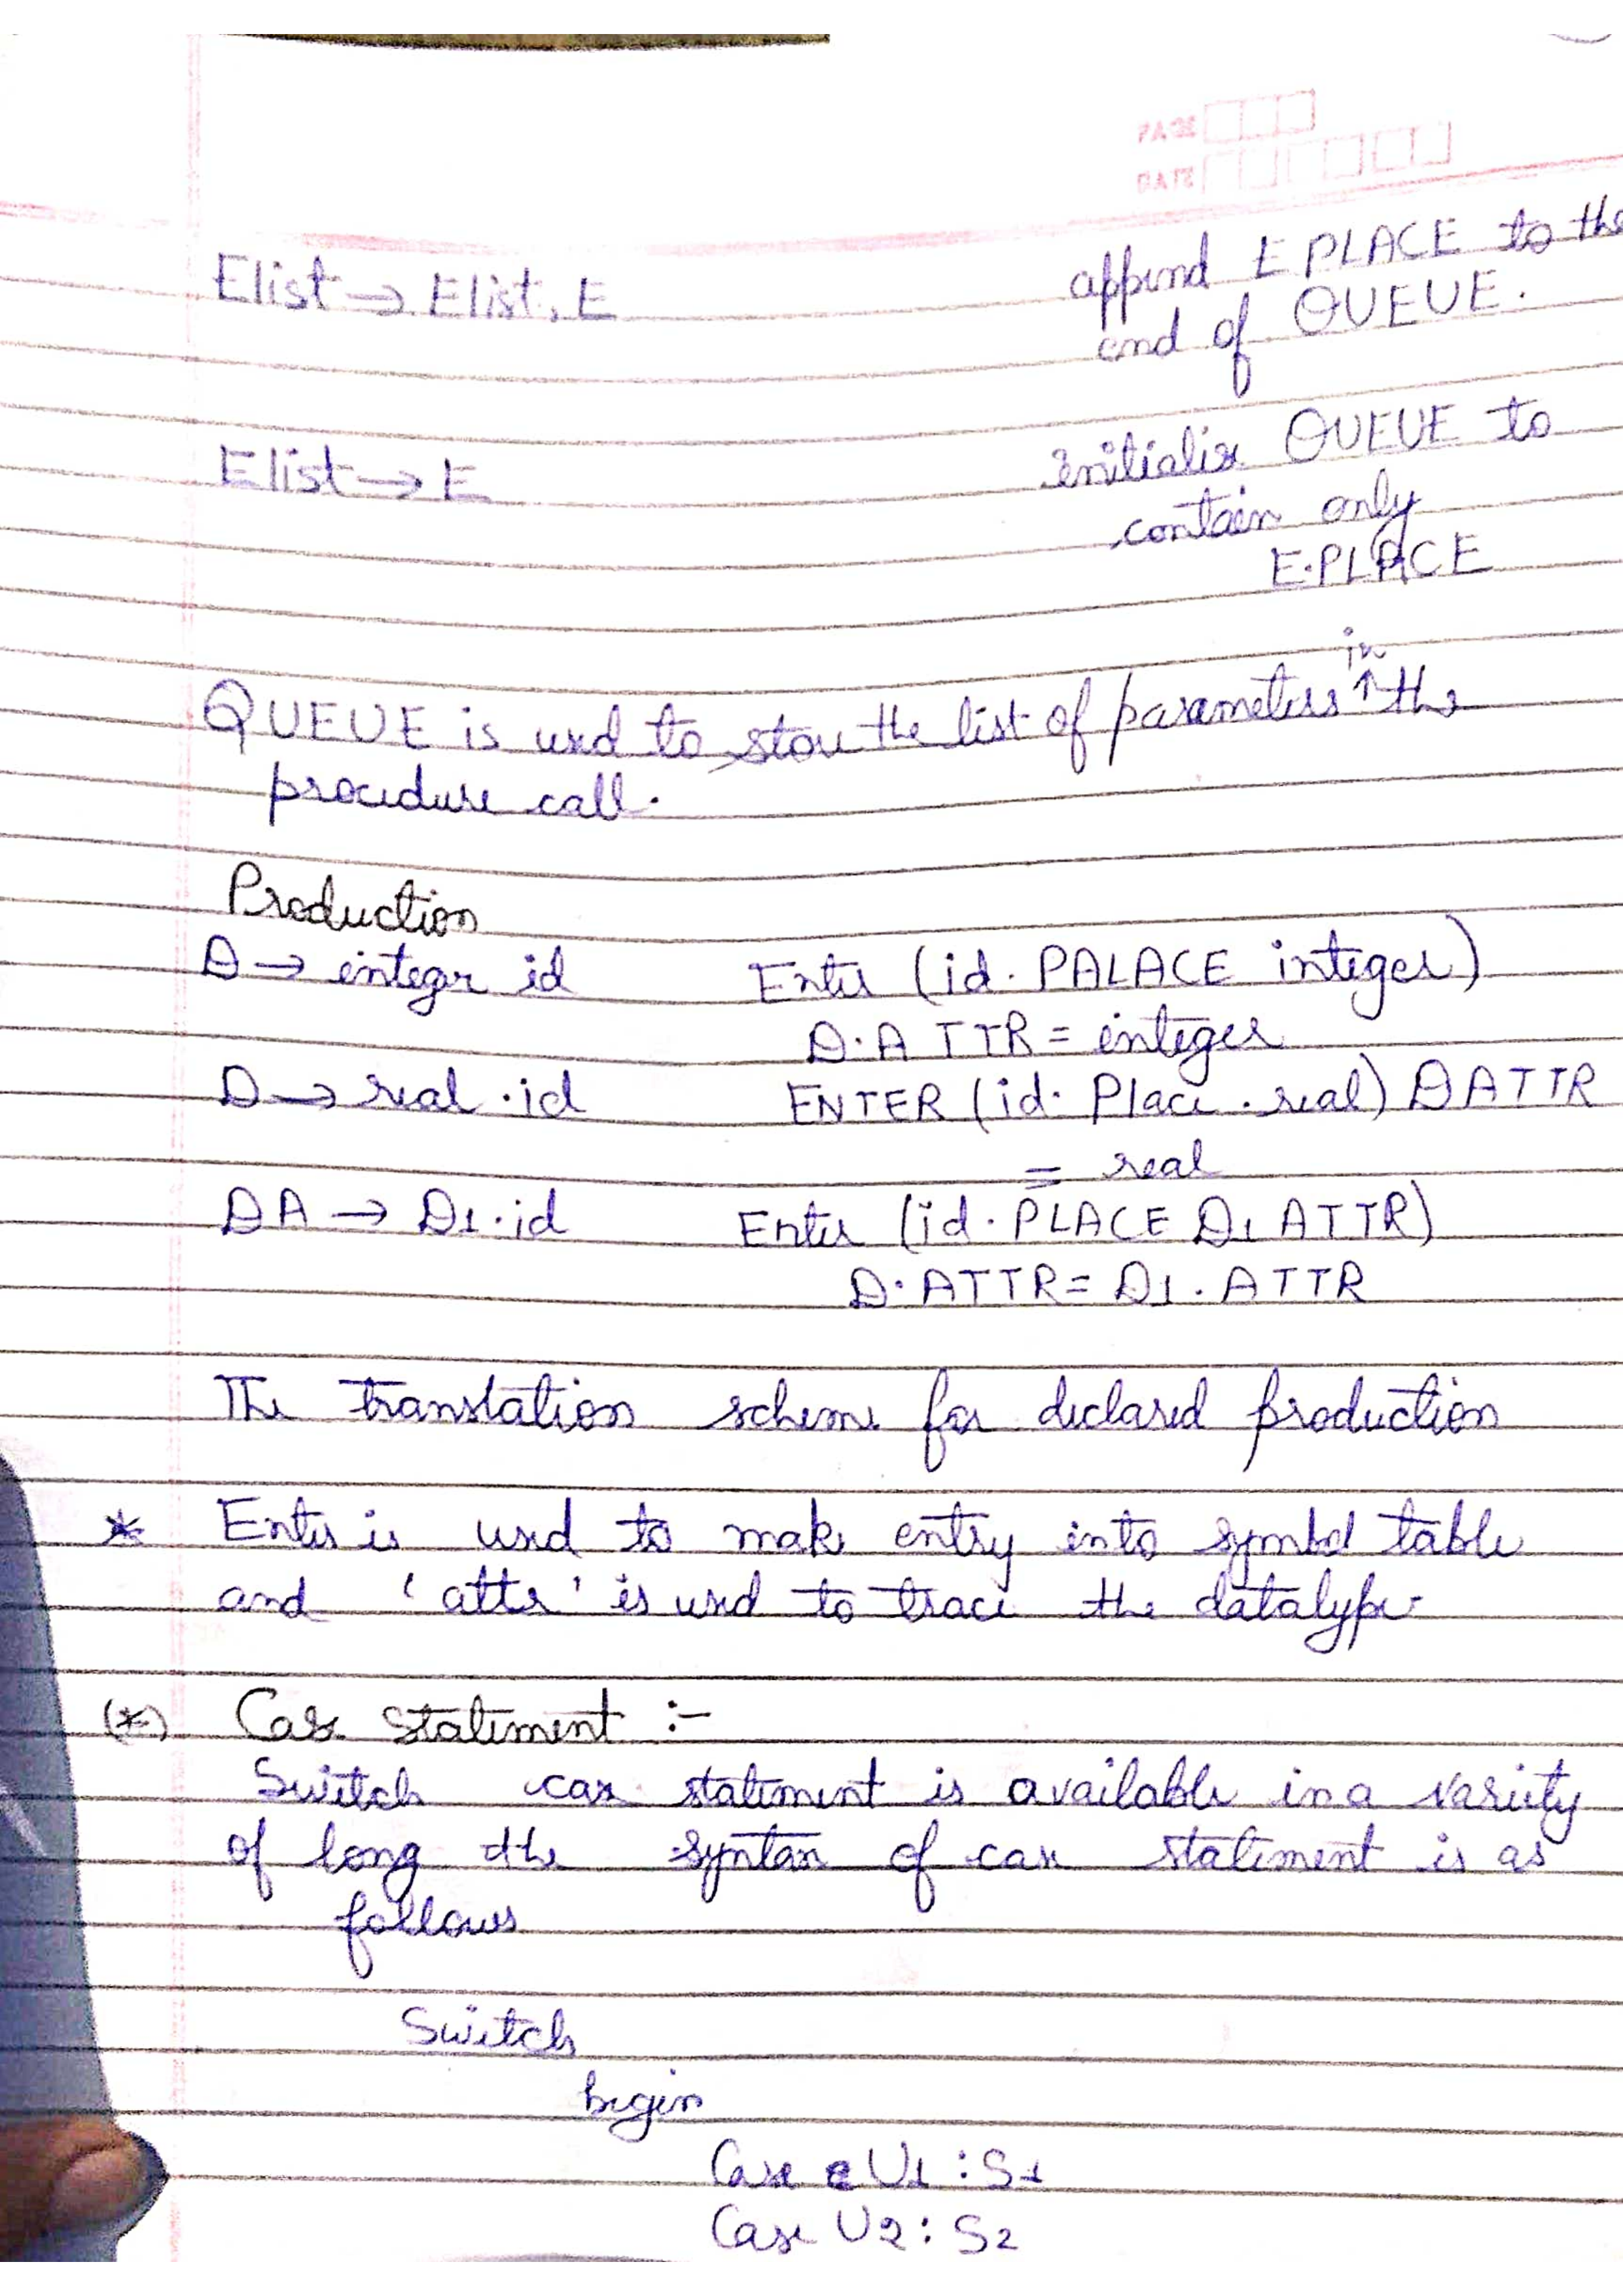 PAGE
DATE
Elist → Elist, E
append E PLACE to the
end of QUEUE.
Elist → E
initialise QUEUE to
contain only
E.PLACE
in
QUEUE is used to store the list of parameters ↑ the
procedure call.
Production
D → integer id Enter (id. PALACE integer)
D.A TTR = integer
D → real .id ENTER (id. Place . real) DATTR
= real
DA → D1.id Enter (id. PLACE D1 ATTR)
D.ATTR = D1.ATTR
The translation scheme for declared production
* Enter is used to make entry into symbol table
and 'attr' is used to trace the datatype.
(*) Case statement :-
Switch case statement is available in a variety
of long the syntax of case statement is as
follows
Switch
begin
Case U1 : S1
Case U2 : S2